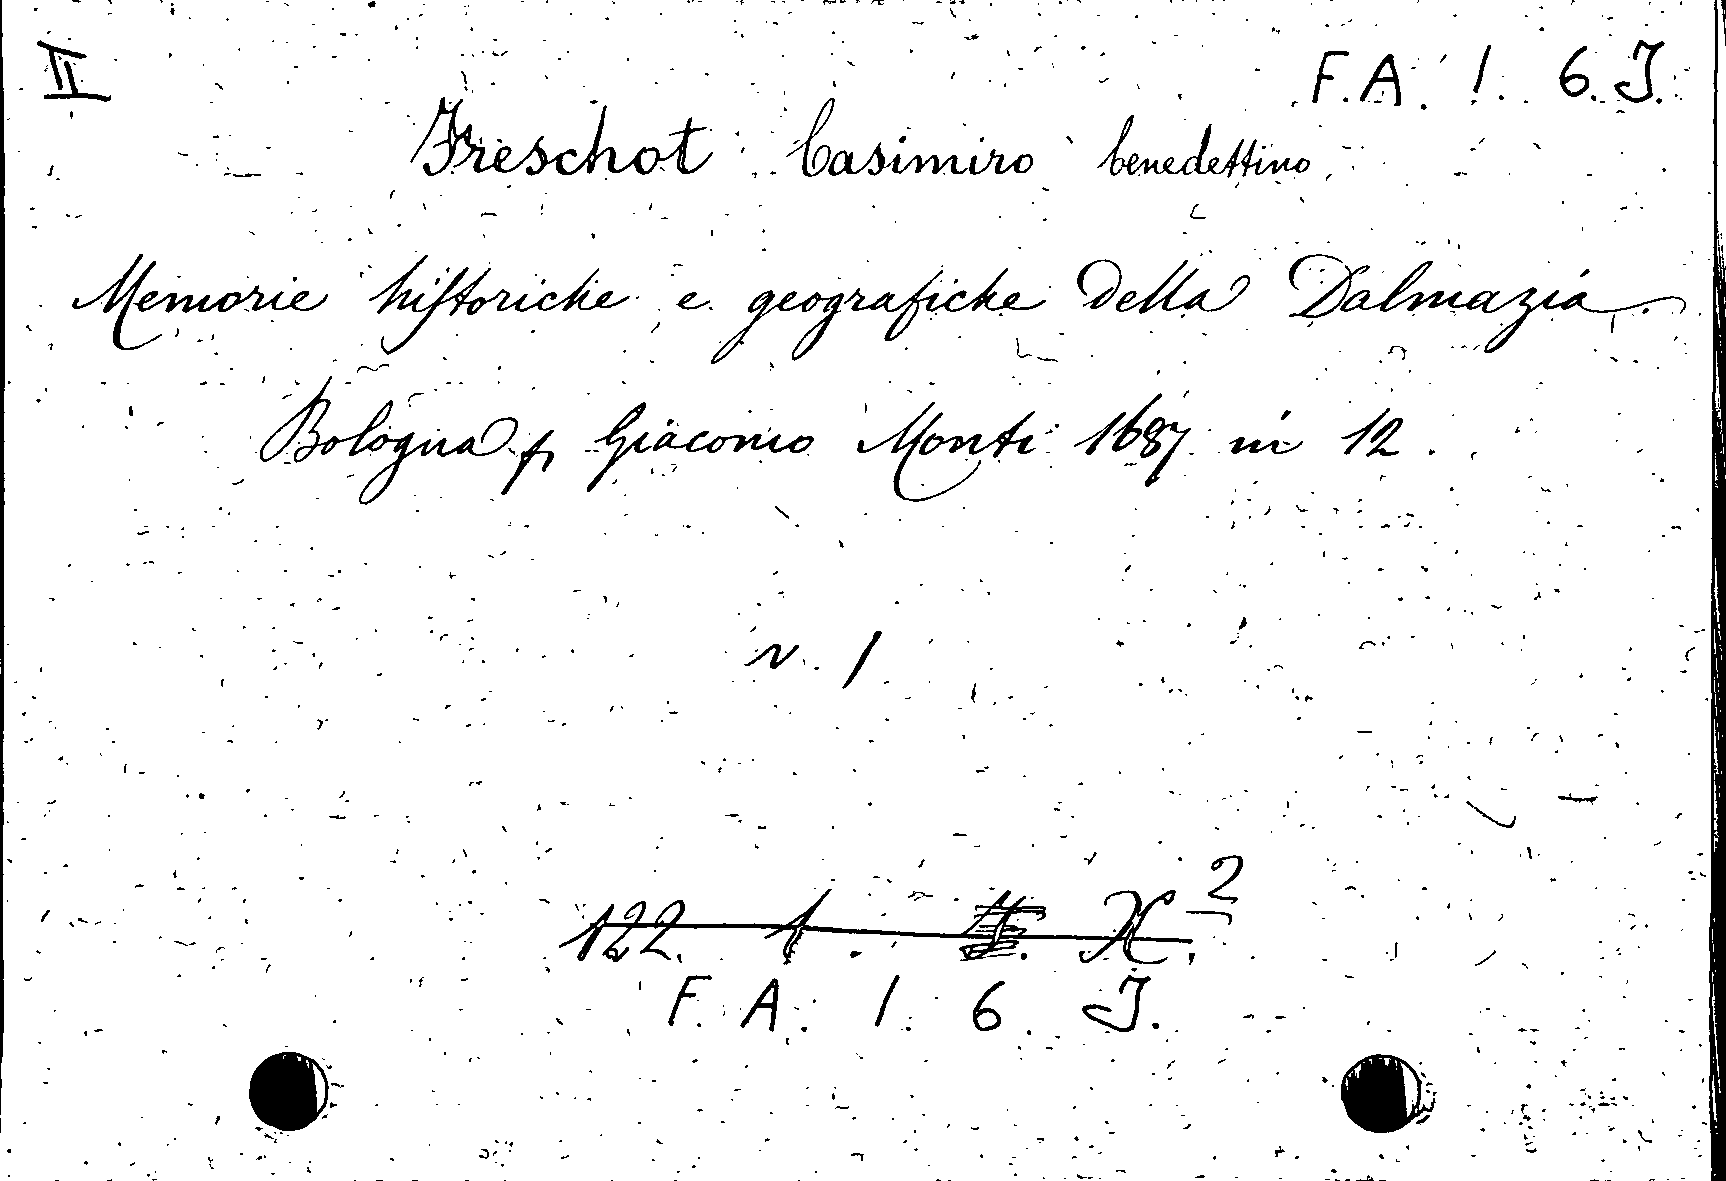 II
F. A. 1. 6. J.
Freschot Casimiro benedettino
Memorie historiche e geografiche della Dalmazia
Bologna p Giacomo Monti 1687 in 12.
v. 1
122. 1. X. 2
F. A. 1. 6. J.